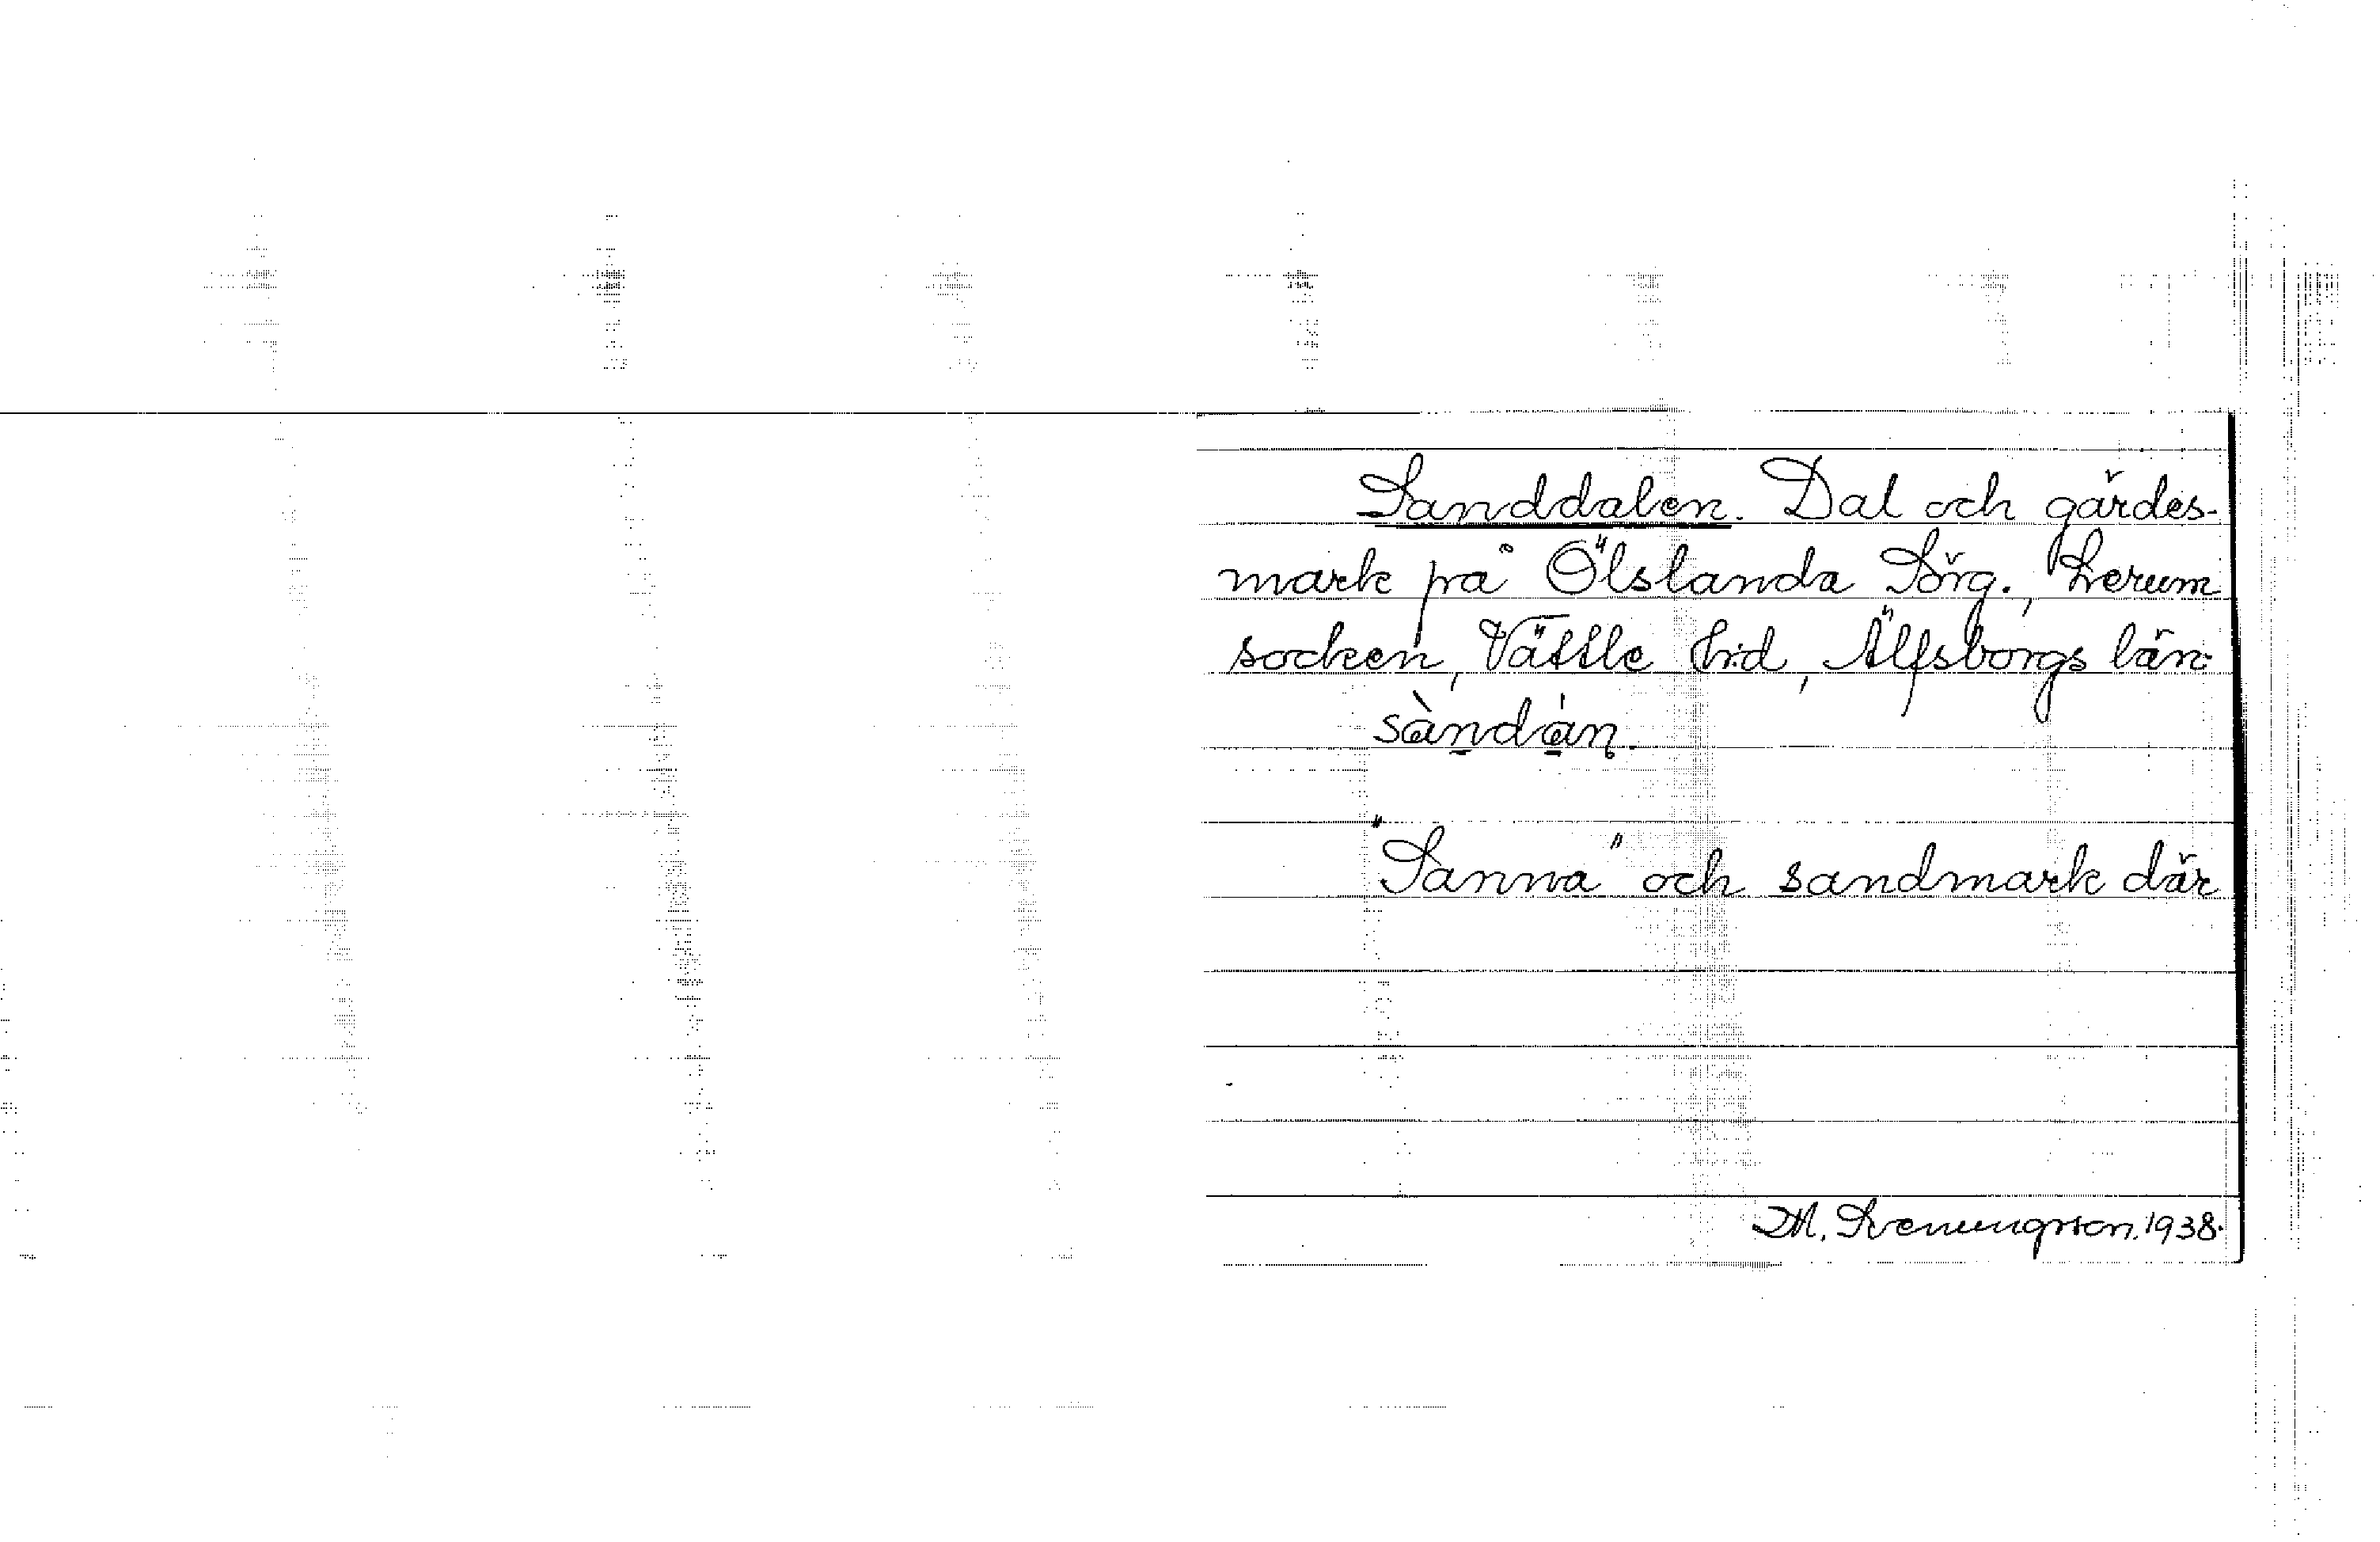 Sanddalen. Dal och gärdes-
mark på Ölslanda Sörg., Lerum
socken, Vättle hrd, Älfsborgs län:
sàndán.
"Sanna" och sandmark där
M. 1938.